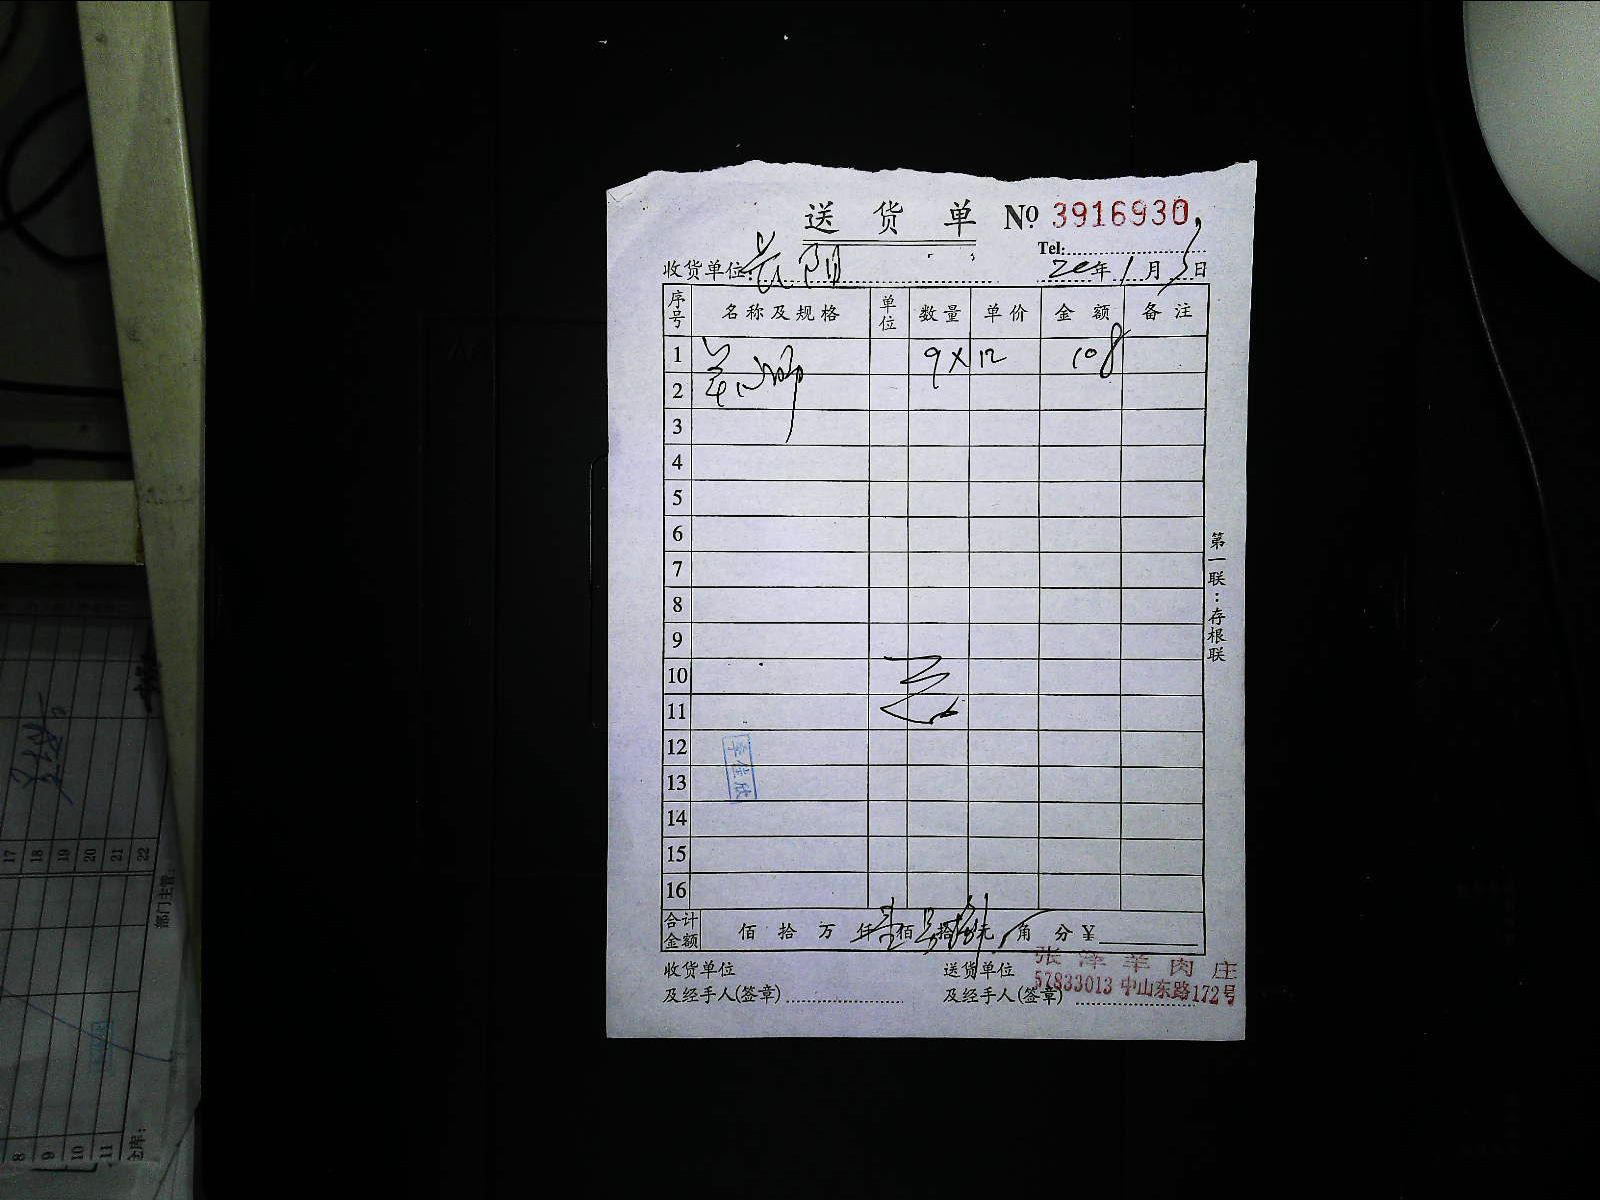 送货单 №3916930
Tel:
收货单位: 岳阳 20年1月5日
序号 名称及规格 单位 数量 单价 金额 备注
1 羊 9×12 108
2
3
4
5
6
7
8
9
10
11
12
13
14
15
16
第一联:存根联
合计金额 佰拾万仟壹佰零拾捌元角分¥
收货单位 送货单位
及经手人(签章) 及经手人(签章)
张泽羊肉庄
57833013 中山东路172号
17
18
19
20
21
22
部门主管:
8
9
10
11
仓库: